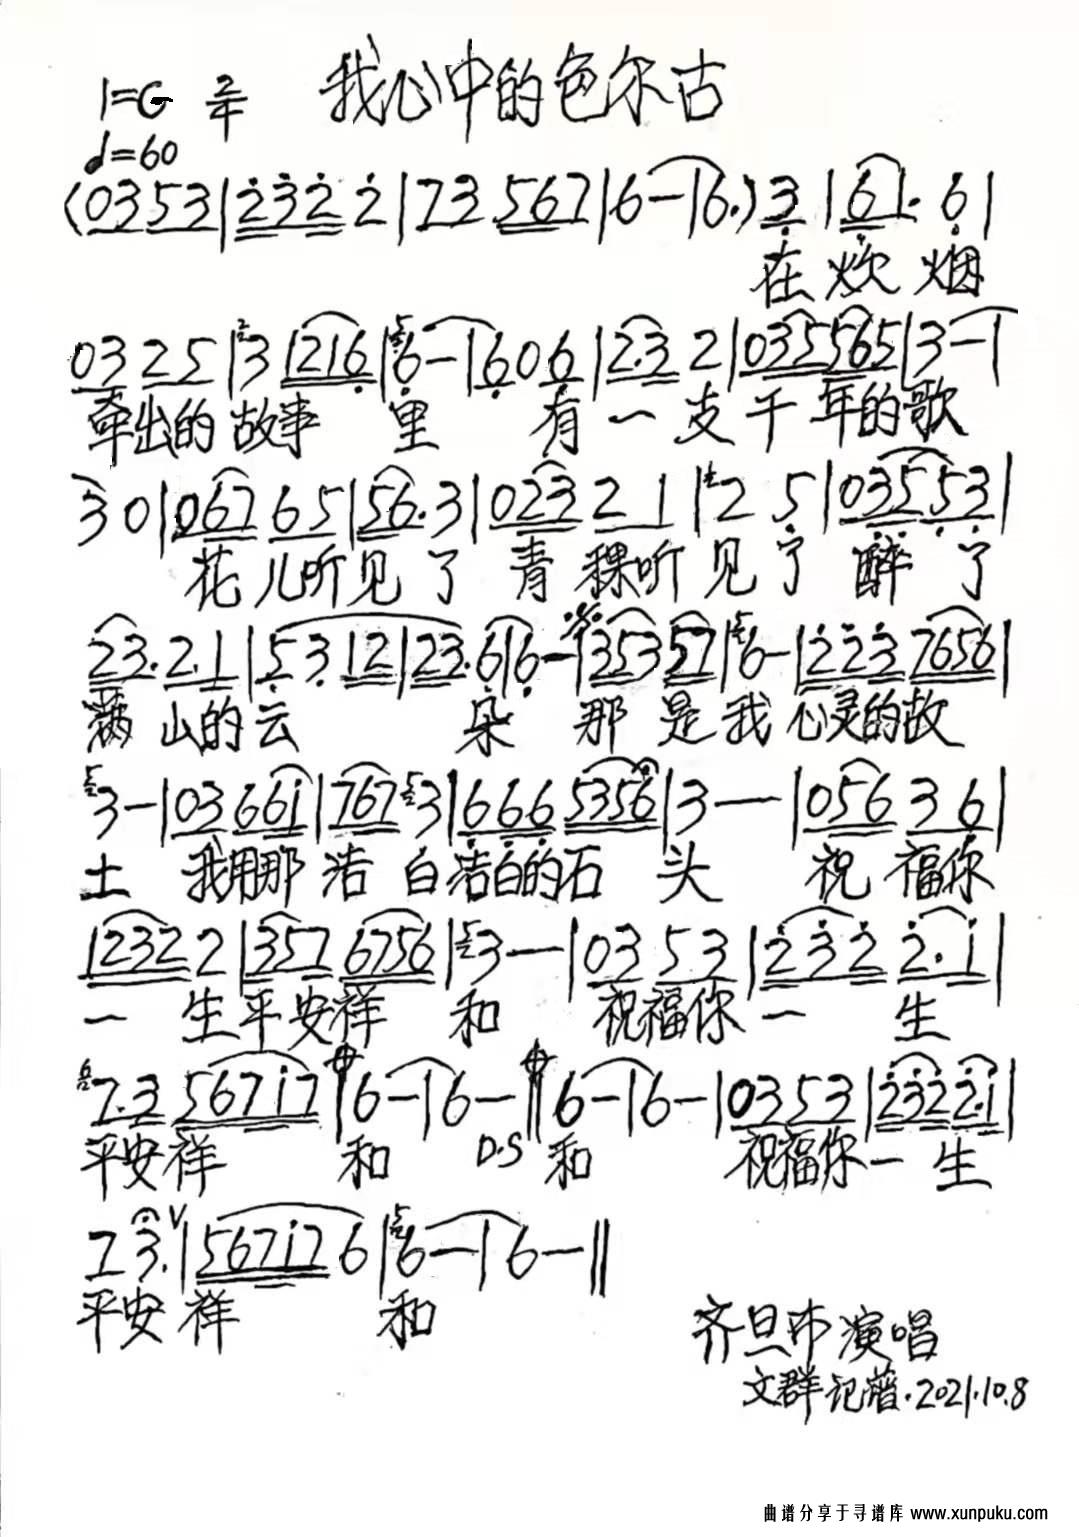 我心中的色尔古
1=G 2/4
♩=60
(0353|2322|73 567|6-|6.)3|61. 6|
在炊烟
03 25|3 1216|6-|606|2.3 2|035565|3-|
牵出的故事 里 有一支千年的歌
30|067 65|56.3|023 2 1|2 5|03553|
花儿听见了 青稞听见了 醉了
23.2.1|53 12|23.6|6-|353 57|6-|223 7656|
满山的云 朵 那是我心灵的故
3-|03 661|767 3|666 5356|3--|056 36|
土 我用那洁白洁白的石头 祝福你
1232 2|357 6756|3-|03 53|232 2.1|
一生平安祥和 祝福你一生
7.3 56717|6-|6-||6-|6-|0353|2322.1|
平安祥 和 D.S 和 祝福你一生
7 3.V|56717 6|6-|6-||
平安祥 和
齐旦布演唱
文群记谱.2021.10.8
曲谱分享于寻谱库 www.xunpuku.com